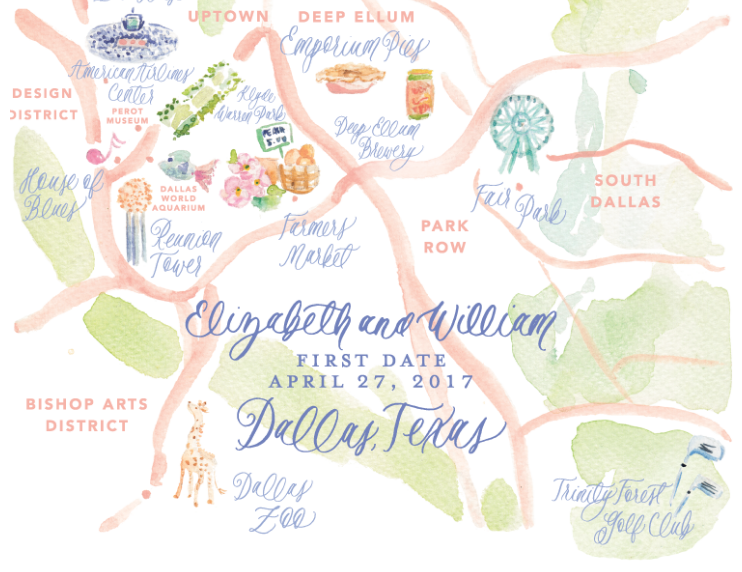 UPTOWN
DEEP ELLUM
Emporium Pies
American Airlines
Center
DESIGN
DISTRICT
PEROT
MUSEUM
Klyde
Warren Park
Deep Ellum
Brewery
House of
Blues
DALLAS
WORLD
AQUARIUM
Reunion
Tower
Farmers
Market
Fair Park
SOUTH
DALLAS
PARK
ROW
Elizabeth and William
FIRST DATE
APRIL 27, 2017
Dallas, Texas
BISHOP ARTS
DISTRICT
Dallas
Zoo
Trinity Forest
Golf Club